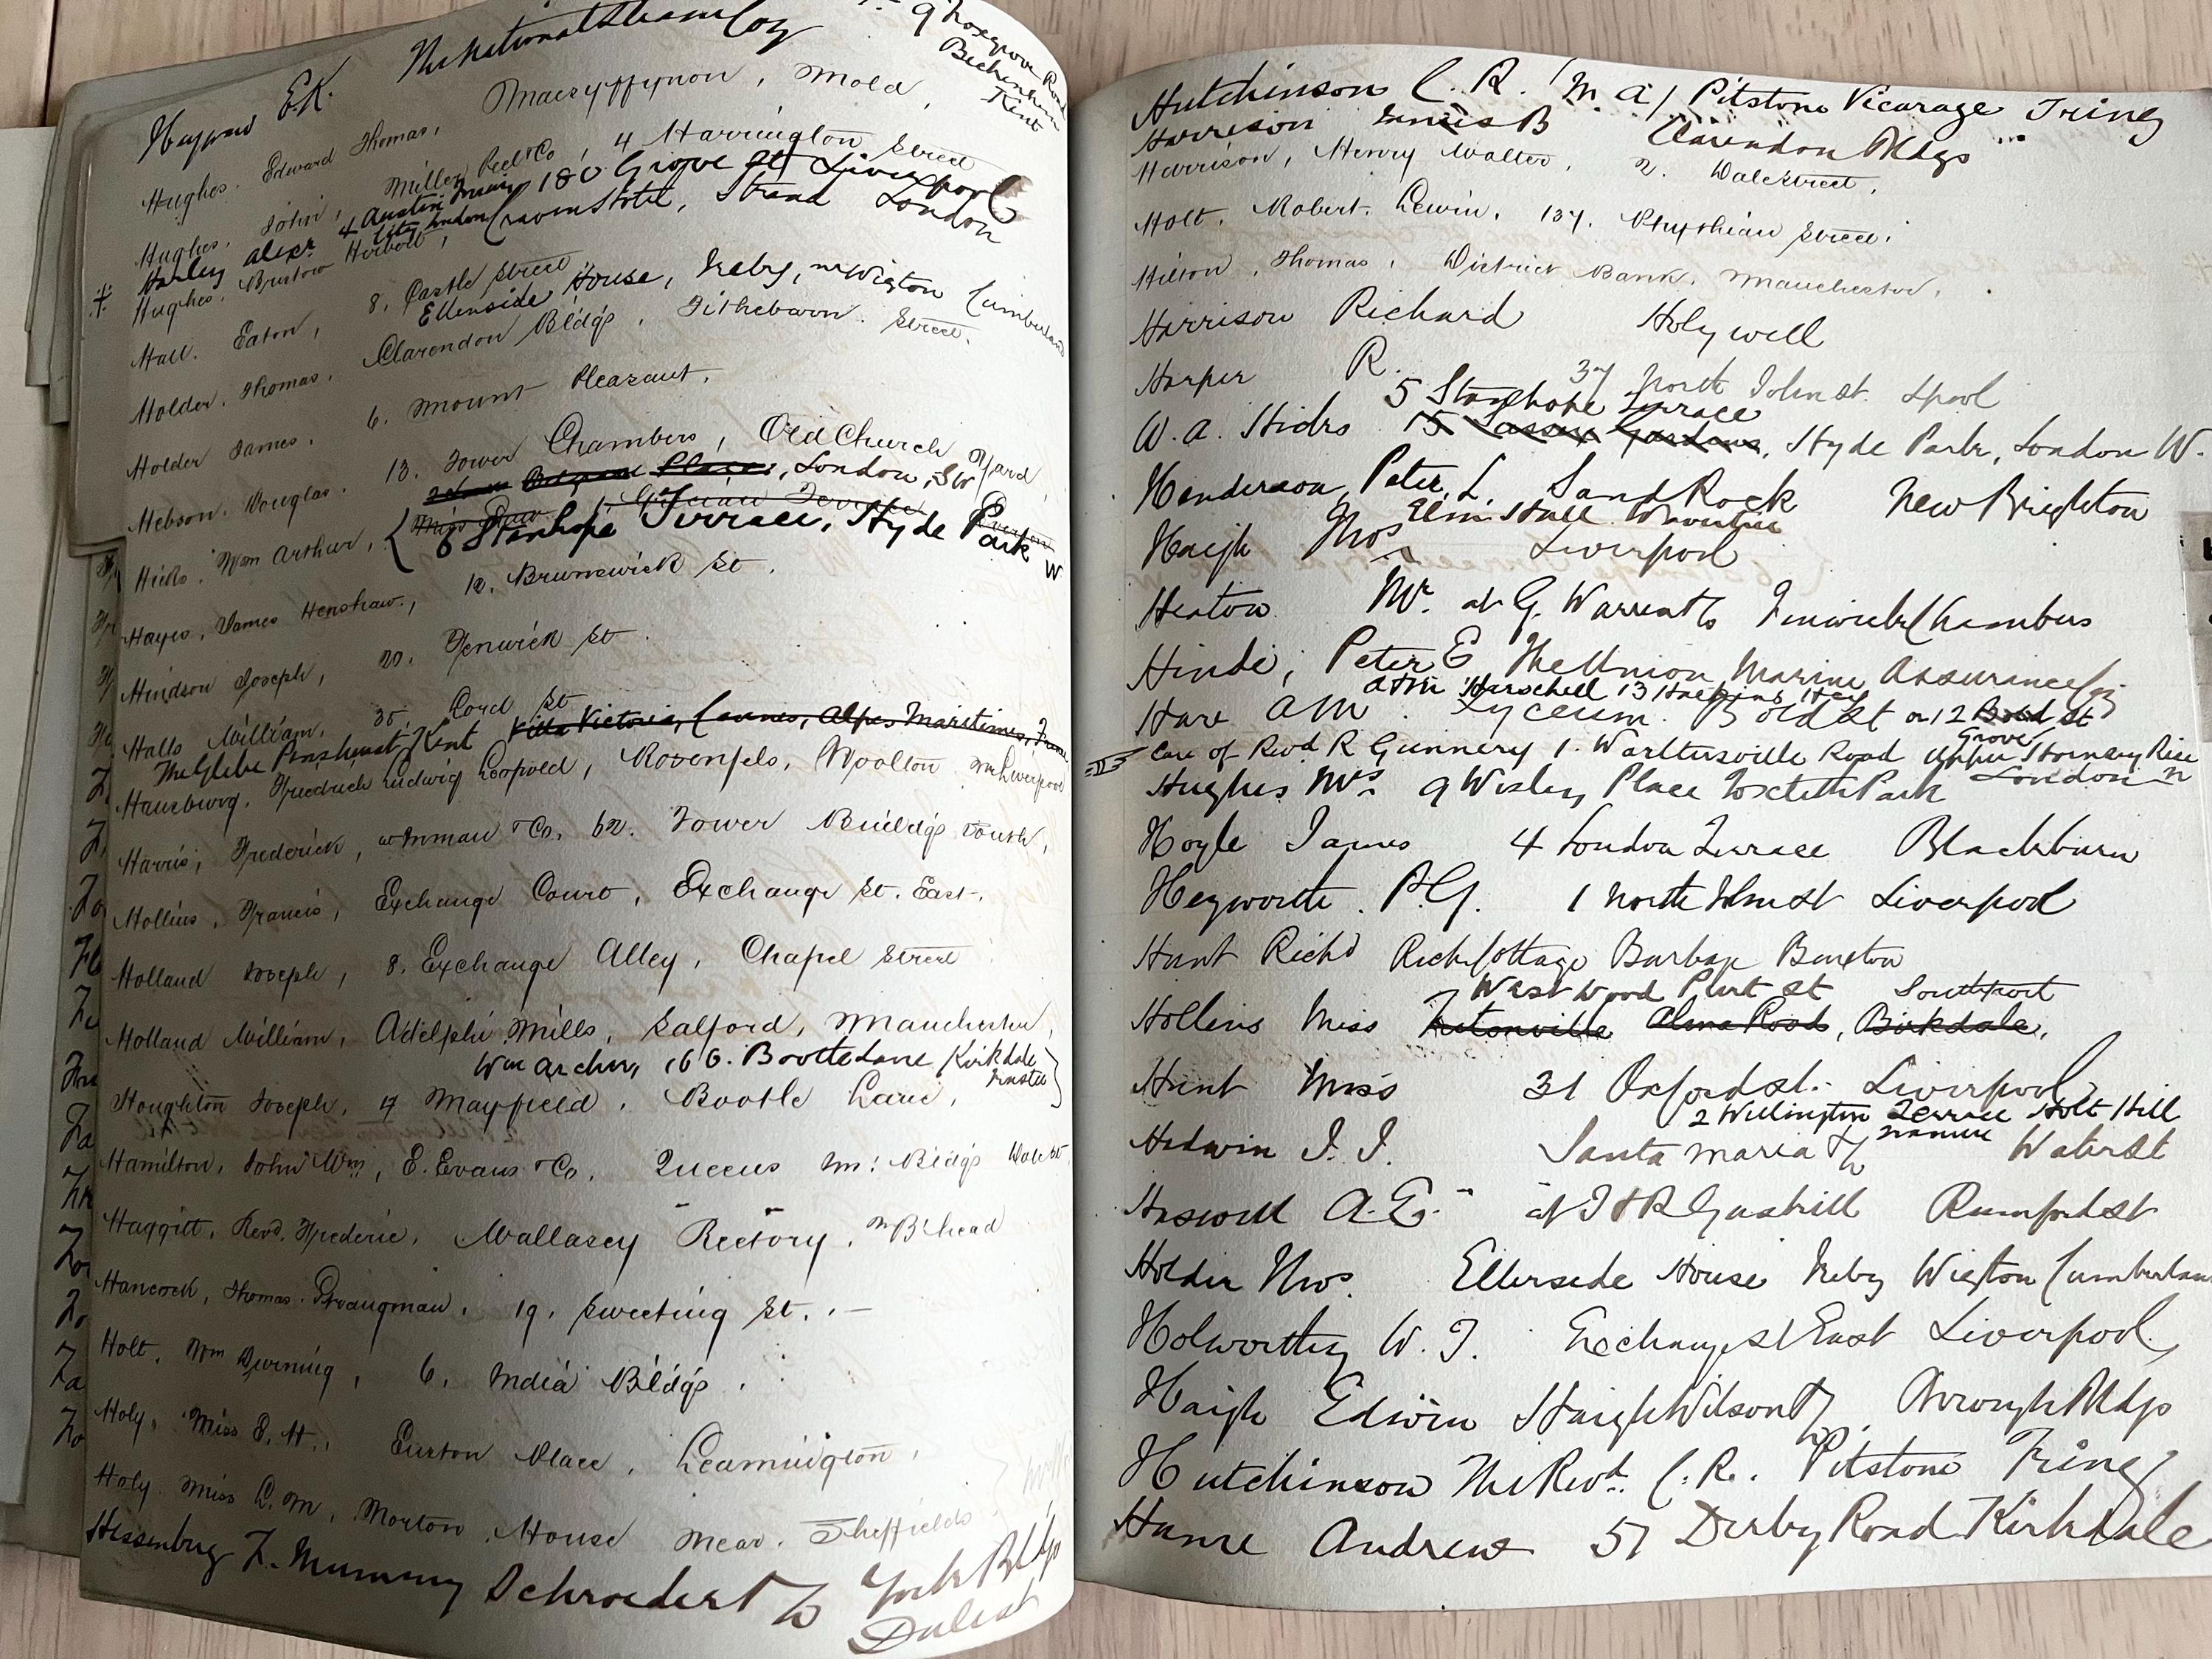 Hayward E.K. The National Steam Coy
9 Foxgrove Road
Beckenham
Kent
Hughes. Edward Thomas, Maesyffynon, Mold,
Hughes. John, Miller, Peel & Co, 4 Harrington Street
Harley Alexr 180 Grove St Liverpool
4 Austin Friars
City London
Hughes. Bristow Herbert, Craven Hotel, Strand London
Hall. Eaton, 8. Castle Street,
Ellenside House, Ireby, nr Wigton Cumberland
Holder. Thomas. Clarendon Bldgs, Tithebarn Street.
Holder James. 6. Mount Pleasant.
Hebson. Douglas. 13. Tower Chambers, Old Church Yard,
Place, London, SW
Hicks. Wm Arthur, { Terrace, Everton
6 Stanhope Terrace, Hyde Park W
Hayes, James Henshaw, 12. Brunswick St.
Hindson Joseph, 20. Fenwick St.
Halls William, 35. Lord St
The Glebe Penshurst Kent Villa Victoria, Cannes, Alpes Maritimes, France
Hausburg. Friedrich Ludwig Leopold, Rosenfels, Woolton nr Liverpool
Harris, Frederick, at Inman & Co, 62. Tower Buildgs South,
Hollins, Francis, Exchange Court, Exchange St. East.
Holland Joseph, 8. Exchange Alley, Chapel Street
Holland William, Adelphi Mills, Salford, Manchester,
Wm Archer, 166. Bootle Lane Kirkdale
Houghton Joseph, 4 Mayfield, Bootle Lane,
Hamilton, John Wm, E. Evans & Co, Queens In: Bldgs Dale St
Haggitt, Revd. Frederic, Wallasey Rectory, nr B'head
Hancock, Thomas 19, Sweeting St.
Holt, Wm Durning, 6, India Bldgs.
Holy, Miss E. H., Euston Place, Leamington,
Holy Miss L. M, Morton House near Sheffield
Hessenberg F. Mummy Schroeder & Co York Bldgs
Dale St
Hutchinson C. R. (M.A) Pitstone Vicarage Tring
Harrison B Clarendon Bldgs
Harrison, Henry Walter, 2. Dale Street,
Holt, Robert. Lewin, 137. Phythian Street.
Hilton, Thomas, District Bank, Manchester,
Harrison Richard Holywell
Harper R. 37 North John St. Lpool
5 Stanhope Terrace
W. A. Hicks 15 Sussex Gardens, Hyde Park, London W.
Henderson, Peter L. Sand Rock New Brighton
Elm Hall Wavertree
Haigh Thos Liverpool
Heaton Mr. at G. Warren & Co Fenwick Chambers
Hinde, Peter E The Union Marine Assurance Coy
at Mr Herschell 13 Hay
Hare A M. Lyceum. Bold St or 12 Bold St
Care of Revd R Gunnery 1. Warltersville Road Upper Hornsey Rise
Grove
London N
Hughes Mrs 9 Wesley Place Toxteth Park
Hoyle James 4 London Terrace Blackburn
Heyworth. P.G. 1 North John St Liverpool
Hunt Richd Rock Cottage Burbage Buxton
7 Westwood Part St Southport
Hollins Miss Alma Road, Birkdale,
Hunt Miss 31 Oxford St. Liverpool
2 Wellington Terrace Holt Hill
Tranmere
Hedwin J. J. Santa Maria & Co Water St
Haswell A. E. at T & R Gaskill Rumford St
Holder Thos. Ellerside House Ireby Wigton Cumberland
Holworthy W. J. Exchange St East Liverpool,
Haigh Edwin Haigh Wilson & Co. Brough Bldgs
Hutchinson The Revd. C. R. Pitstone Tring
Hume Andrew 57 Derby Road Kirkdale